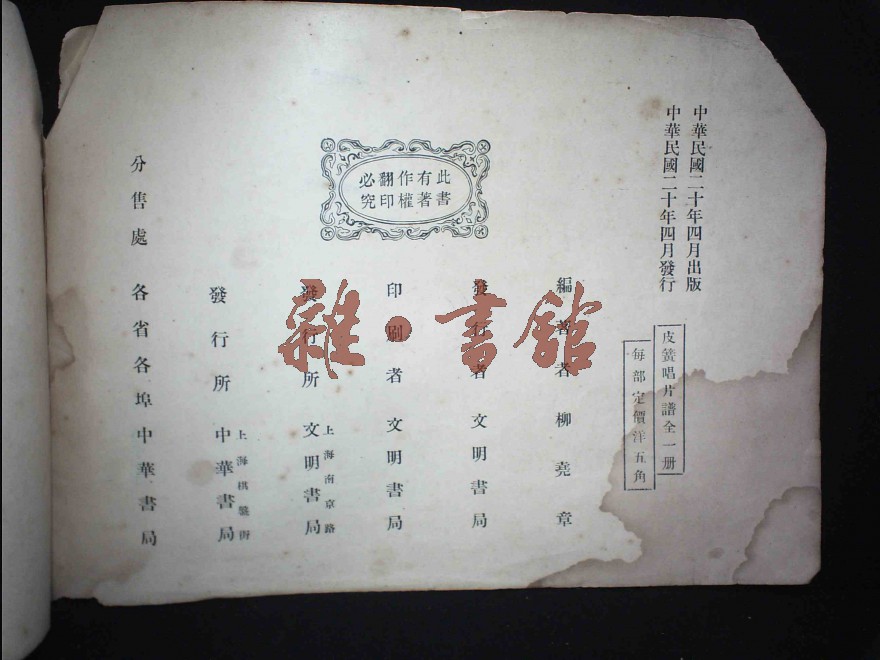 中華民國二十年四月出版
中華民國二十年四月發行
皮簧唱片譜全一册
每部定價洋五角
此書
有著
作權
翻印
必究
編著者 柳堯章
發行者 文明書局
印刷者 文明書局
上海南京路
發行所 文明書局
上海棋盤街
發行所 中華書局
分售處 各省各埠中華書局
雜·書館